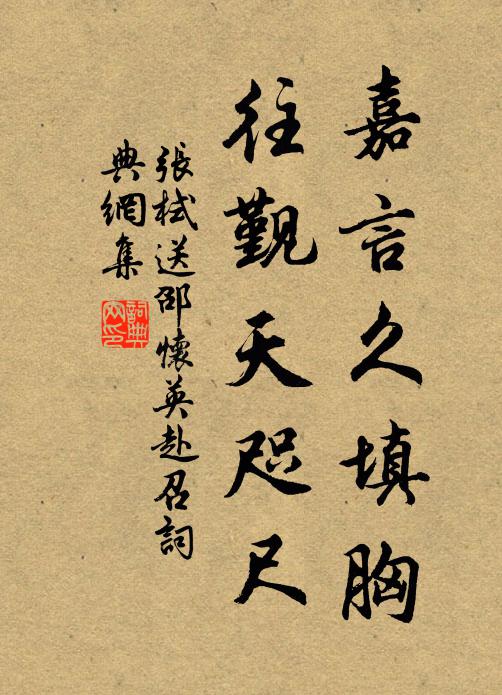 嘉言久填胸
往觐天咫尺
張栻送邵懷英赴召詞
典網集
詞典
网印